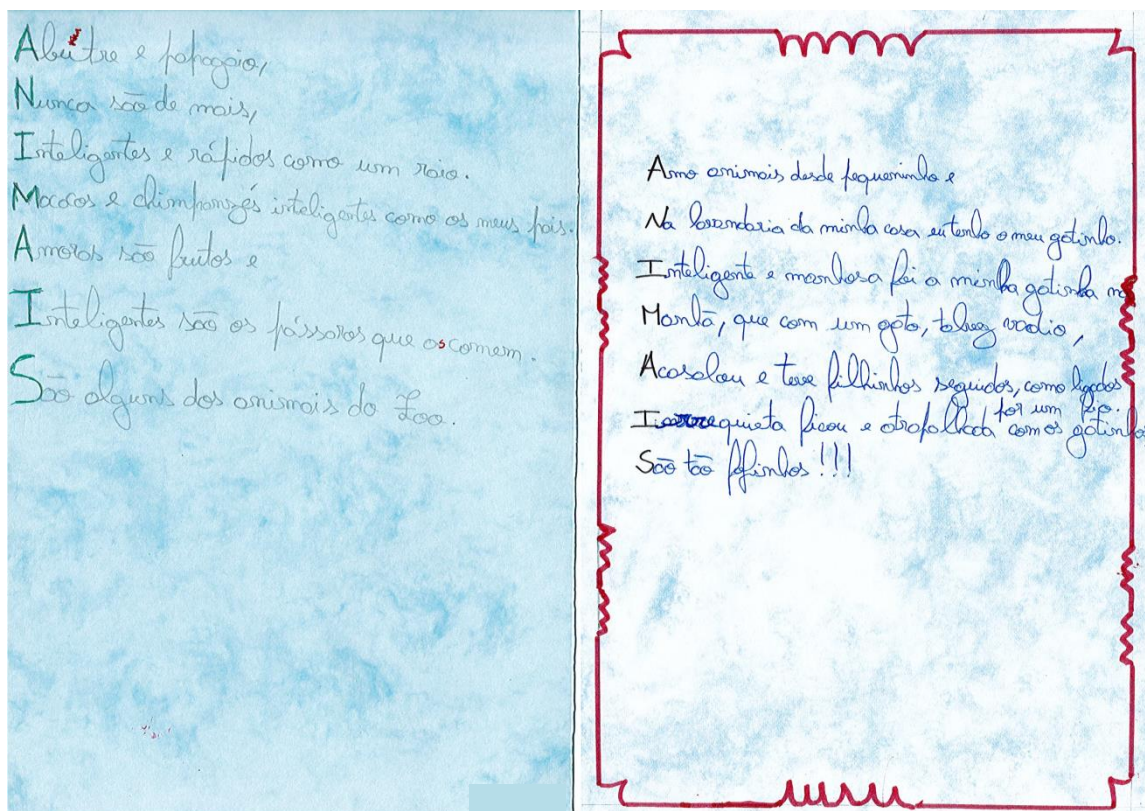 Abutre e papagaio,
Nunca são de mais,
Inteligentes e rápidos como um raio.
Macacos e chimpanzés inteligentes como os meus pais.
Amoras são frutos e
Inteligentes são os pássaros que as comem.
São alguns dos animais do Zoo.
Amo animais desde pequeninho e
Na lavandaria da minha casa eu tenho o meu gatinho.
Inteligente e manhosa foi a minha gatinha na
Manhã, que com um gato, talvez vadio,
Acasalou e teve filhinhos seguidos, como ligados
por um fio.
quieta ficou e atrapalhada com os gatinhos
São tão fofinhos !!!